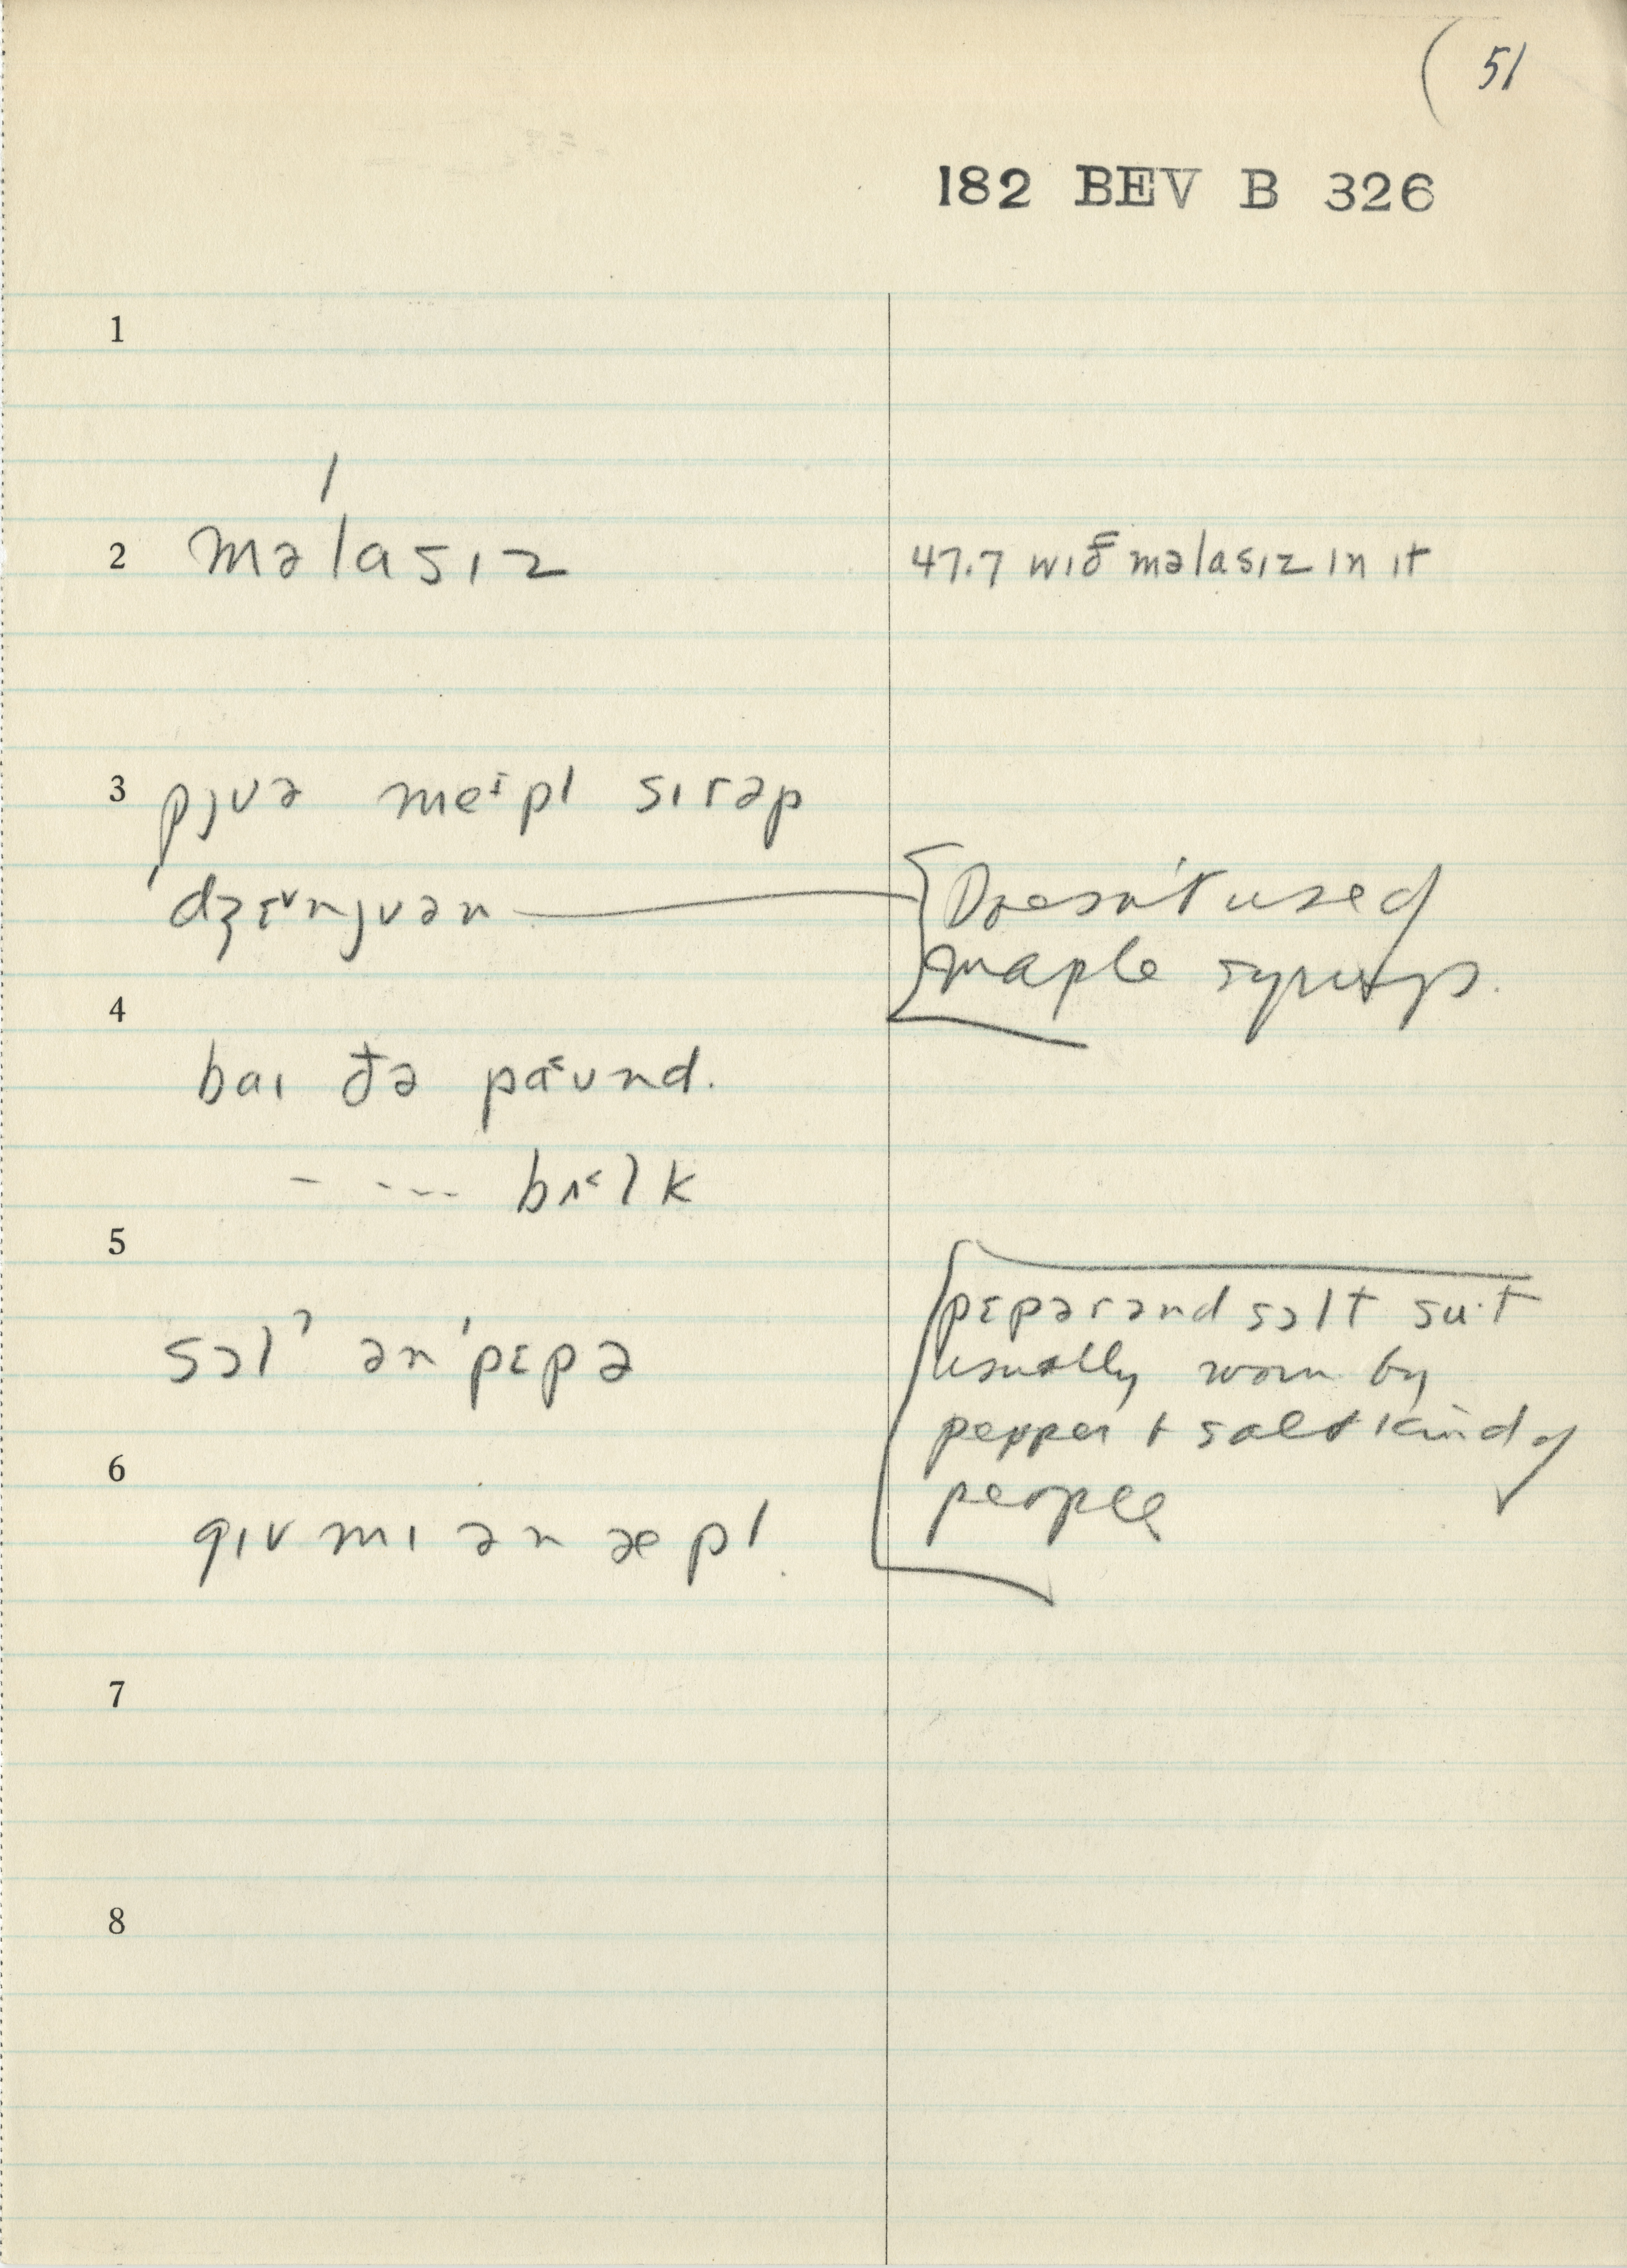 ( 51
182 BEV B 326
1
2 məlasɪz
47.7 wɪð məlasɪz ɪn ɪt
3 pjʊə meɪpl sɪrəp
dʒɛ˅njʊən
Doesn't use of
maple syrup.
4
baɪ ðə paʊnd.
- --- bʌ˂lk
5
sɔlˀ ən 'pɛpə
pɛpər ənd sɔlt suit
usually worn by
pepper + salt kind of
people
6
gɪv mɪ ən æpl.
7
8